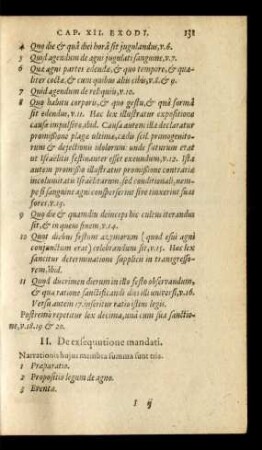 CAP. XII. EXODI. 131
4 Quo die & quâ diei horâ sit jugulandus, v.6.
5 Quid agendum de agni jugulati sanguine, v.7.
6 Quæ agni partes edendæ, & quo tempore, & qualiter
coctæ, & cum quibus aliis cibis, v.8. & 9.
7 Quid agendum de reliquiis, v.10.
8 Quo habitu corporis, & quo gestu, & quâ formâ
sit edendus, v.11. Hæc lex illustratur expositione
causæ impulsivæ, ibid. Causa autem illa declaratur
promissione plagæ ultimæ, cædis scil. primogenitorum
& dejectionis idolorum: unde futurum erat
ut Israëlitis festinanter esset exeundum, v.12. Ista
autem promissio illustratur promissione contraria
incolumitatis Israëlitarum, sed conditionali, nempe
si sanguine agni conspersæ sint sive tinxerint suas
fores, v.13.
9 Quo die & quamdiu deinceps hic cultus iterandus
sit, & in quem finem, v.14.
10 Quot diebus festum azymorum (quod esui agni
conjunctum erat) celebrandum sit, v.15. Hæc lex
sancitur determinatione supplicii in transgressorem,
ibid.
11 Quod discrimen dierum in illo festo observandum,
& quâ ratione sanctificandi dies illi universi, v.16.
Versu autem 17. inseritur ratio istius legis.
Postremò repetitur lex decima, unà cum sua sanctione,
v.18.19 & 20.
II. De exsequutione mandati.
Narrationis hujus membra summa sunt tria.
1 Præparatio.
2 Propositio legum de agno.
3 Eventa.
I ij